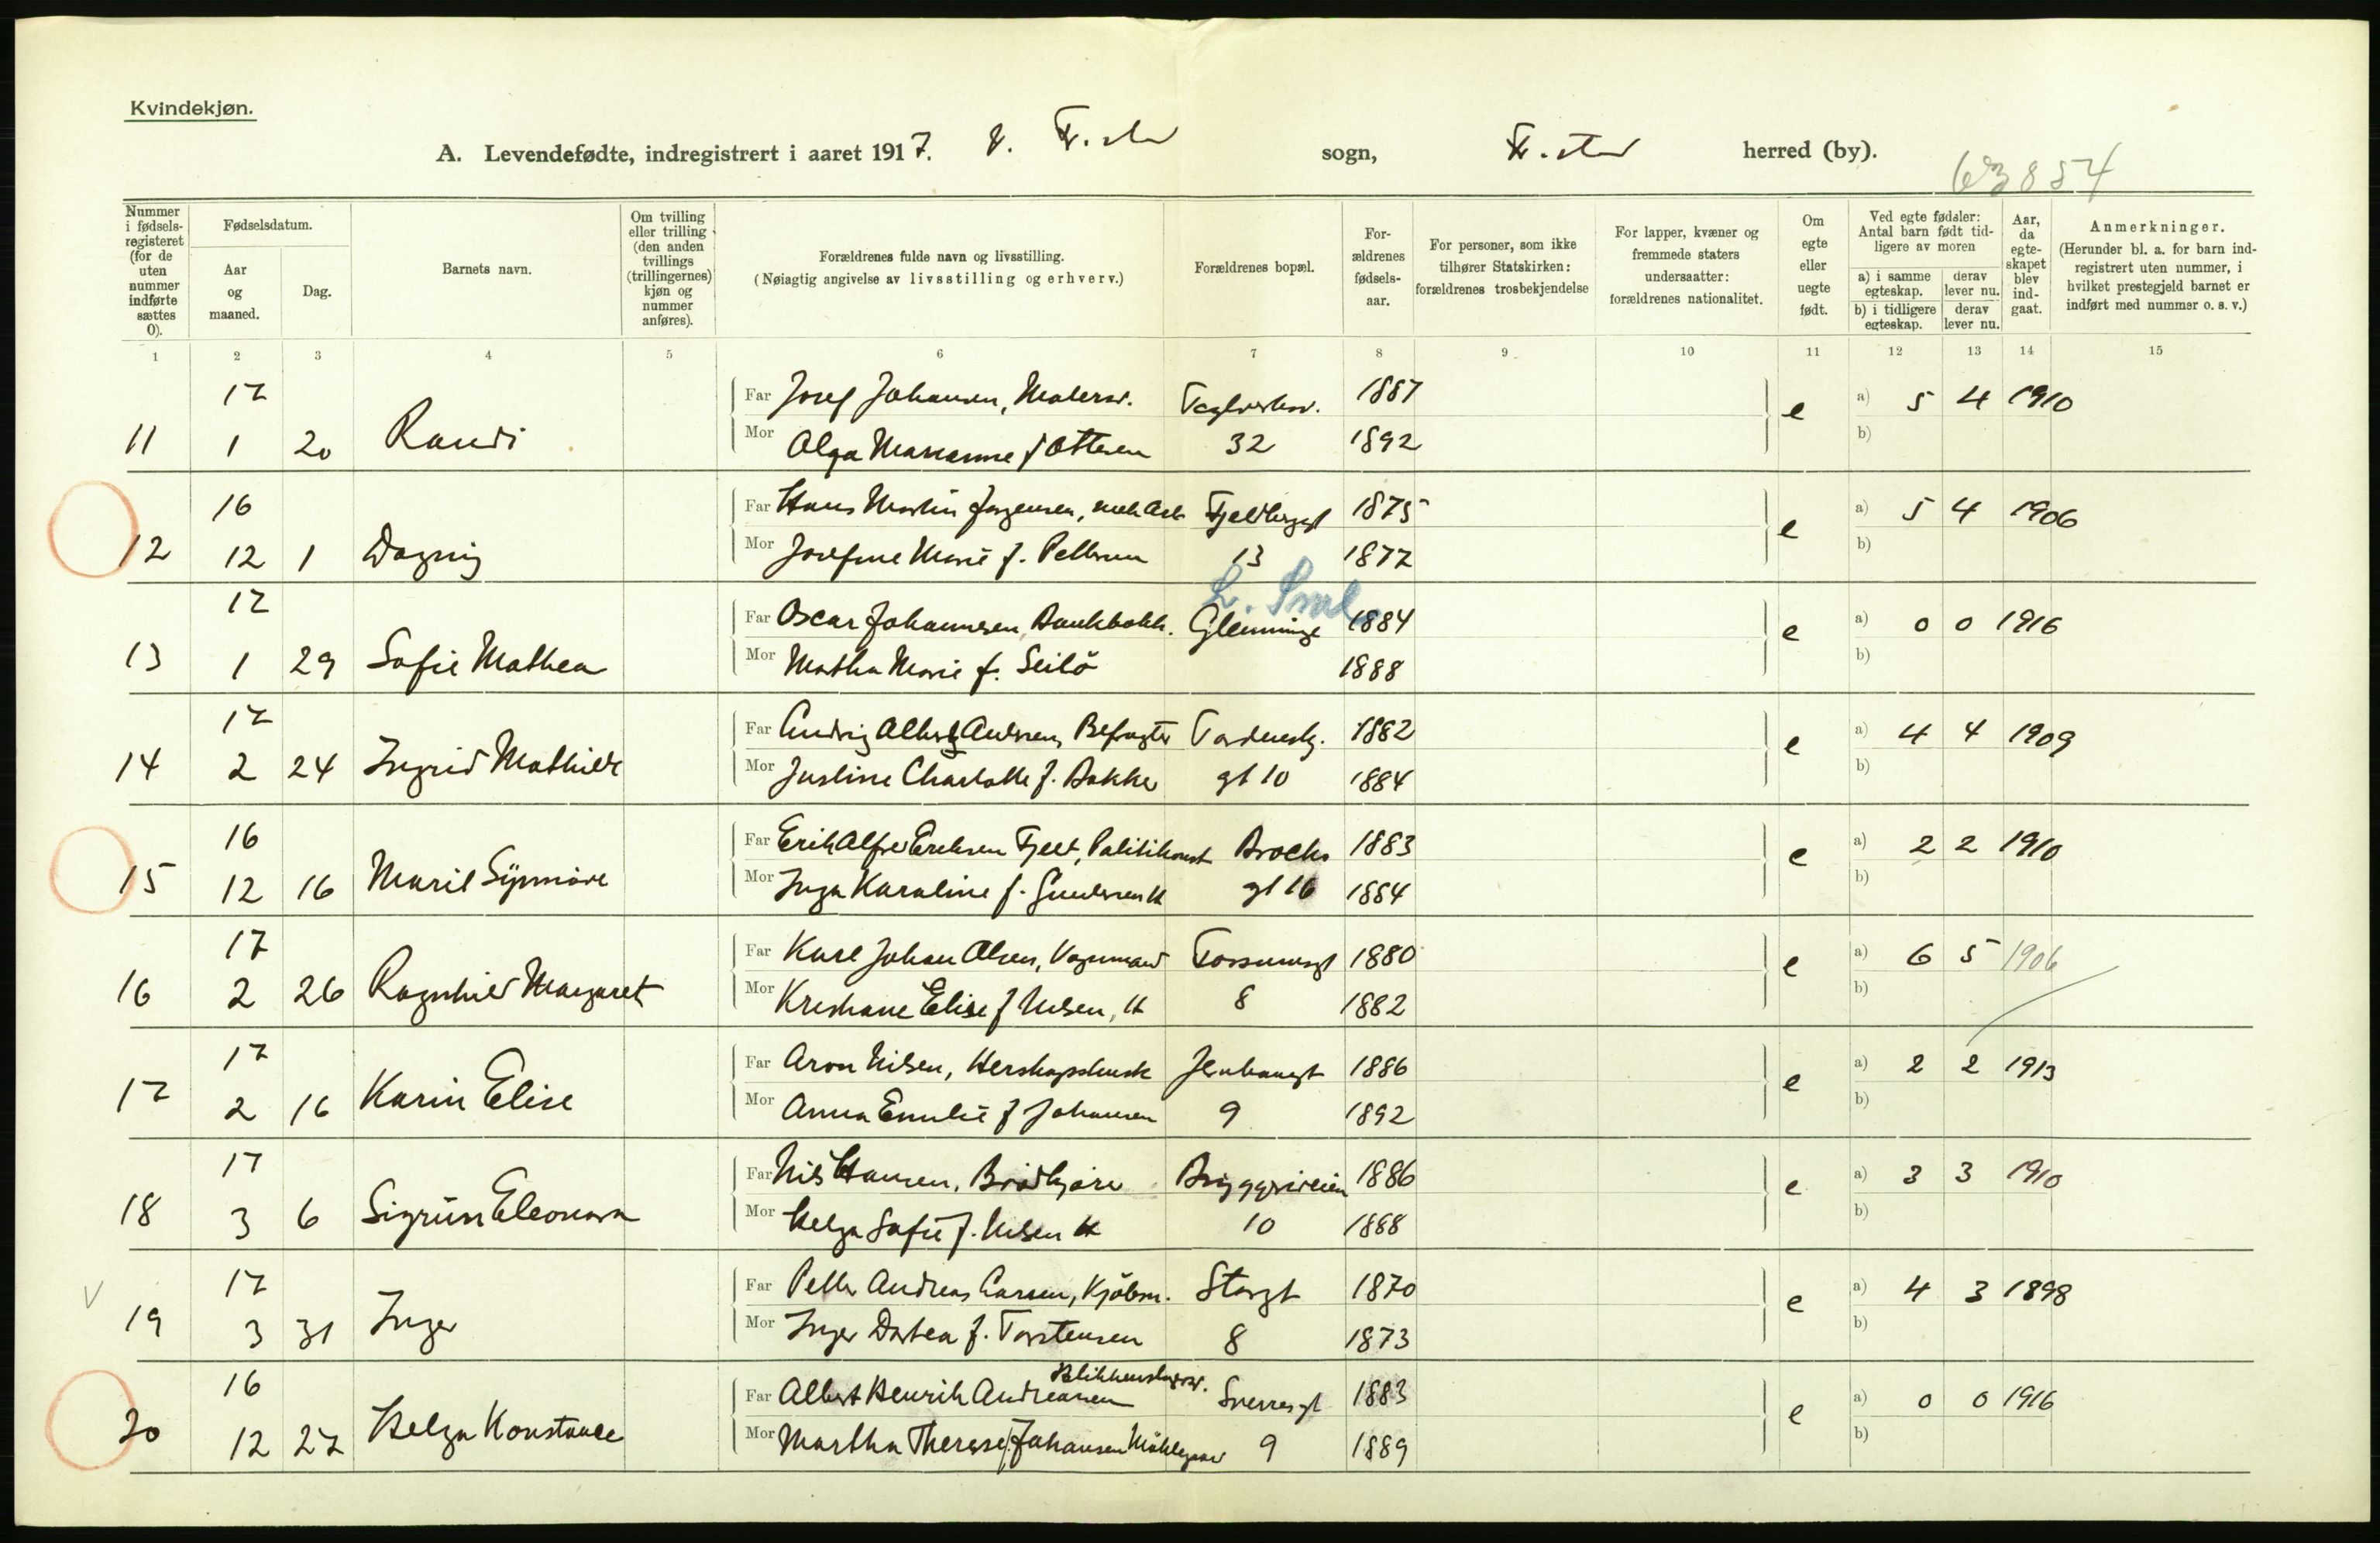 Kvindekjøn.
A. Levendefødte, indregistrert i aaret 1917. V. Fr.stad sogn, Fr.stad herred (by).
63854
Nummer i fødsels-registeret (for de uten nummer indførte sættes 0).
Fødselsdatum.
Aar og maaned.
Dag.
Barnets navn.
Om tvilling eller trilling (den anden tvillings (trillingernes) kjøn og nummer anføres).
Forældrenes fulde navn og livsstilling.
(Nøiagtig angivelse av livsstilling og erhverv.)
Forældrenes bopæl.
For-ældrenes fødsels-aar.
For personer, som ikke tilhører Statskirken: forældrenes trosbekjendelse
For lapper, kvæner og fremmede staters undersaatter: forældrenes nationalitet.
Om egte eller uegte født.
Ved egte fødsler: Antal barn født tid-ligere av moren
a) i samme egteskap. derav lever nu.
b) i tidligere egteskap. derav lever nu.
Aar, da egte-skapet blev ind-gaat.
Anmerkninger.
(Herunder bl. a. for barn ind-registrert uten nummer, i hvilket prestegjeld barnet er indført med nummer o. s. v.)
1 2 3 4 5 6 7 8 9 10 11 12 13 14 15
17 Far Josef Johansen, Malersv. 1887 e a) 5 4 1910
11 1 20 Randi Mor Olga Marianne f Ottesen 32 1892 b)
16 Far Hans Martin Jørgensen, Fjeldberggt 1875 e a) 5 4 1906
12 12 1 Dagny Mor Josefine Marie f. Pettersen 13 1877 b)
17 Far Oscar Johannesen, Bankbokh. Glemminge 1884 e a) 0 0 1916
13 1 29 Sofie Mathea Mor Marie f. Seilö 1888 b)
17 Far Ludvig Albert Andersen, Tordenskj. 1882 e a) 4 4 1909
14 2 24 Ingrid Mathilde Mor Justine Charlotte f. Bakke gt 10 1884 b)
16 Far Erik Alfred Eriksen Fjeld, Politikonst Brochs 1883 e a) 2 2 1910
15 12 16 Maril Synnöve Mor Inga Karoline f. Gundersen H gt 16 1884 b)
17 Far Karl Johan Olsen, Vognmand 1880 e a) 6 5 1906
16 2 26 Ragnhild Margaret Mor Kristiane Elise f Nilsen, H 8 1882 b)
17 Far Aron Nilsen, Herskapskusk Jernbanegt 1886 e a) 2 2 1913
17 2 16 Karin Elise Mor Anna Emilie f Johansen 9 1892 b)
17 Far Nils Hansen, Brödkjörer Bryggeriveien 1886 e a) 3 3 1910
18 3 6 Sigrun Eleonora Mor Helga Sofie f. Nilsen H 10 1888 b)
17 Far Petter Andreas Larsen, Kjöbm. Storgt 1870 e a) 4 3 1898
V 19 3 31 Inger Mor Inger Dortea f. Torstensen 8 1873 b)
Blikkenslagersv.
16 Far Albert Henrik Andreasen Sverresgt 1883 e a) 0 0 1916
20 12 27 Helga Konstanse Mor Martha Therese f. Johansen 9 1889 b)